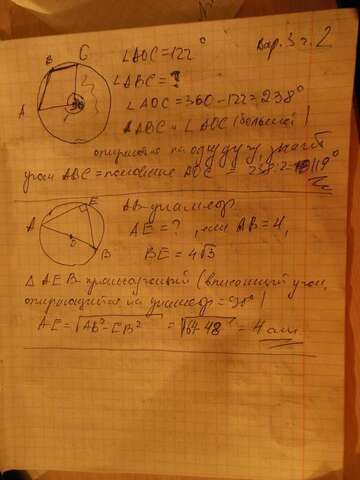 Вар. 3 г. 2
B C
∠AOC = 122°
∠ABC = ?
A
∠AOC = 360 - 122 = 238°
∠ABC и ∠AOC (большой)
опираются на одну дугу, значит
угол ABC = половине AOC = 238:2 = 119°
E
AB - диаметр
A
AE = ?, если AB = 4,
O
B
BE = 4√3
Δ AEB - прямоугольный (вписанный угол,
опирающийся на диаметр = 90°)
AE = √AB² - EB² = √64-48 = 4